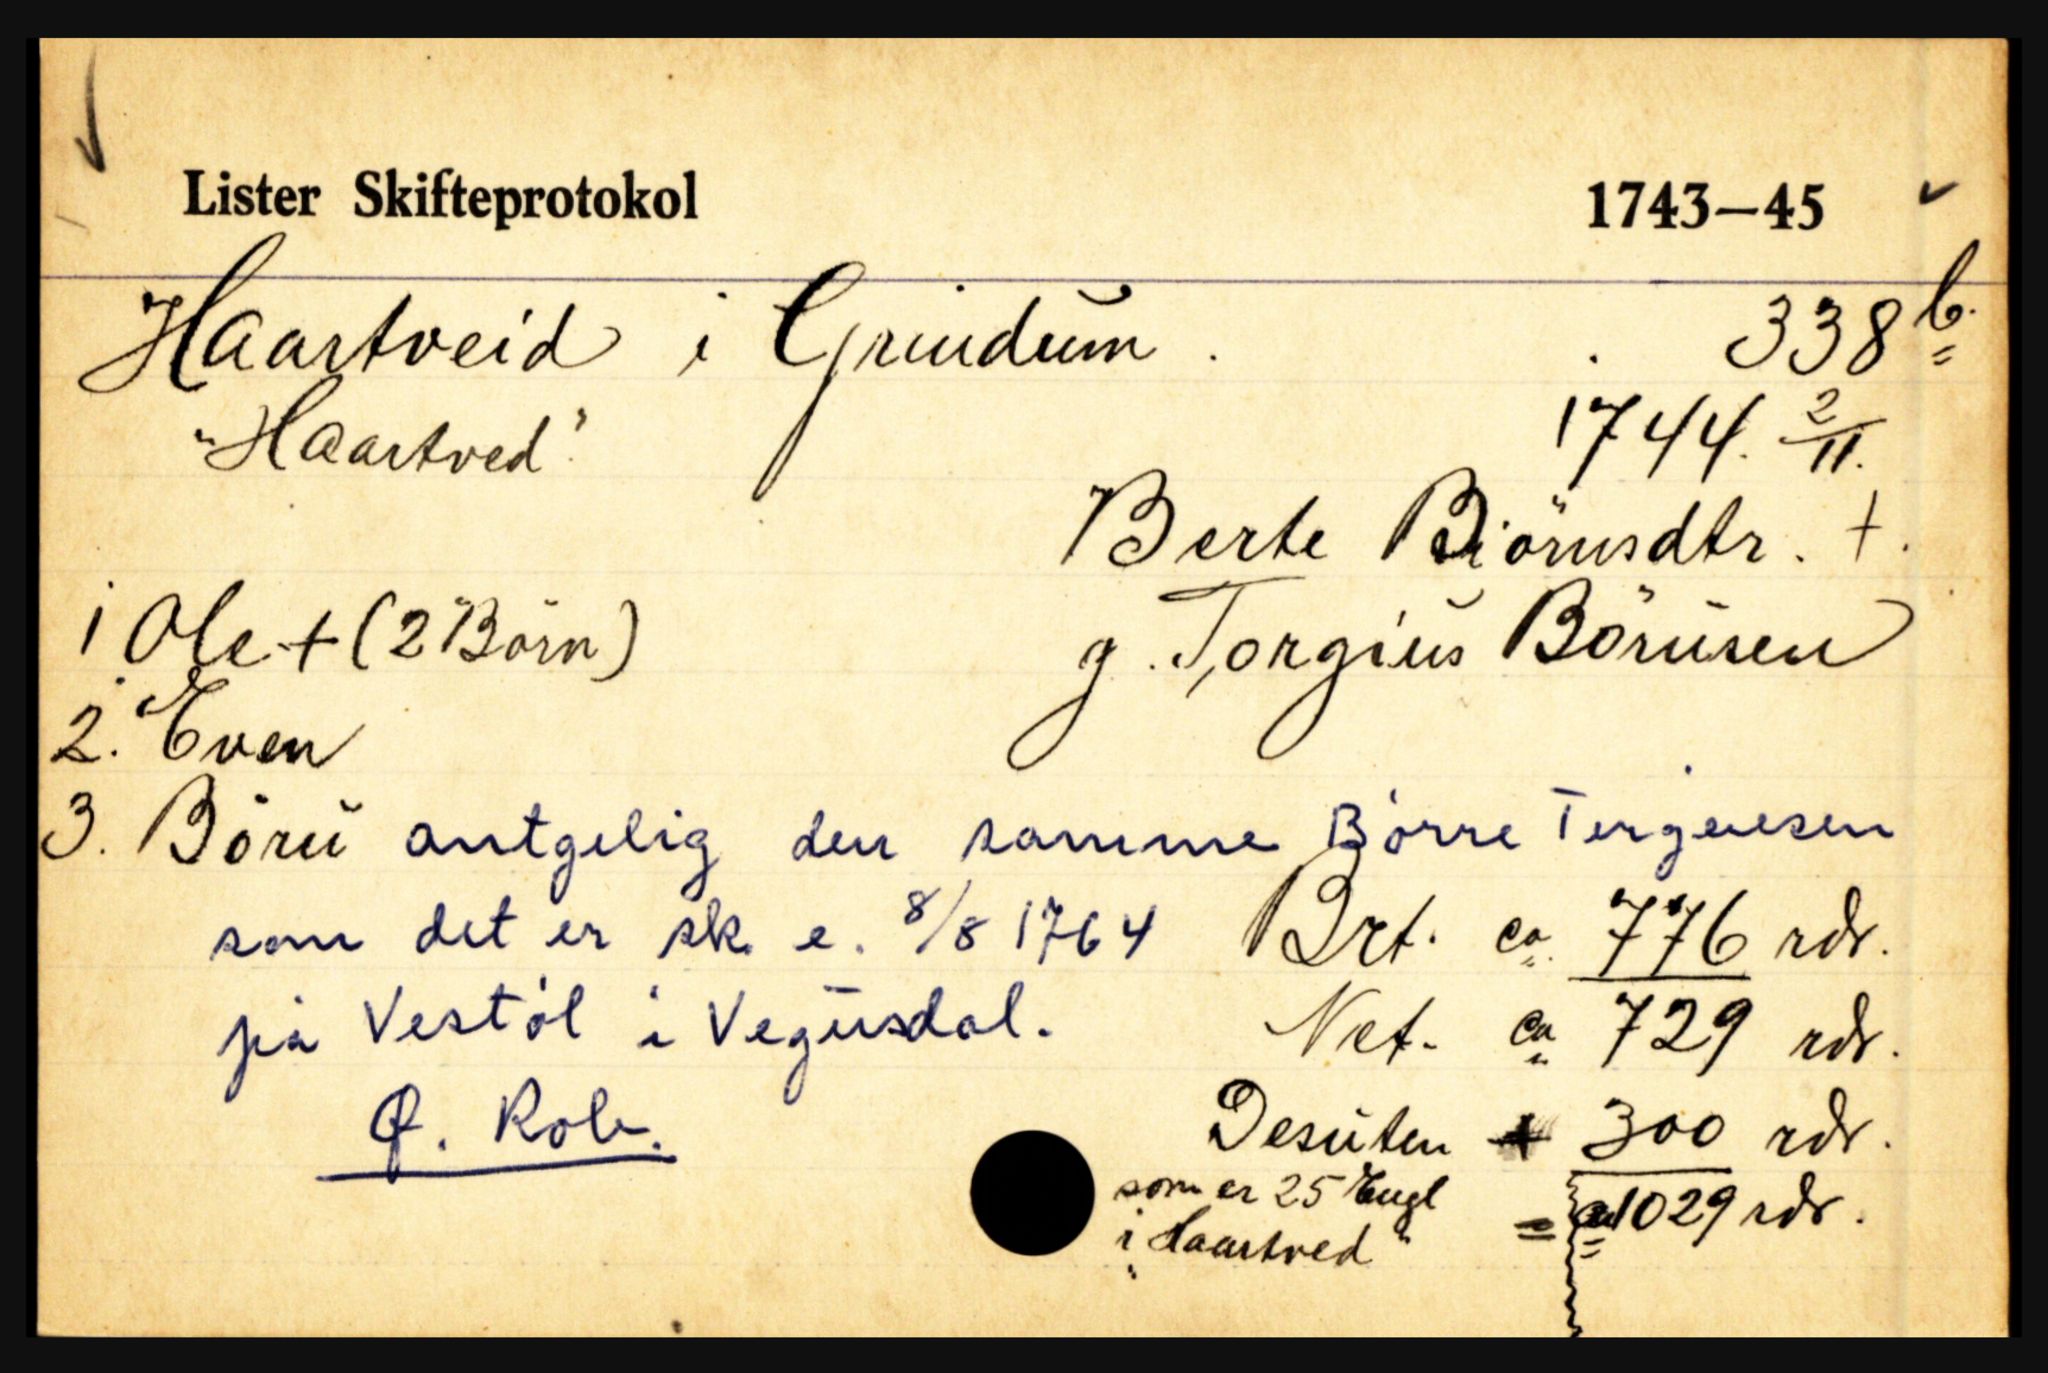 Lister Skifteprotokol 1743–45
Haartveid i Grindum. 338 b.
"Haartved" 1744. 2/11.
Berte Biörnsdtr. +.
1 Ole + (2 Börn) g. Torgius Börusen
2. Even
3. Böru antgelig den samme Börre Tergeuesen
som det er sk. e. 8/8 1764 Brt. ca. 776 rdr.
på Vestöl i Vegusdal. Net. ca 729 rdr.
Ø. Rob. Desuten + 300 rdr.
som er 25 Eugl = ca 1029 rdr.
i "Haartved"